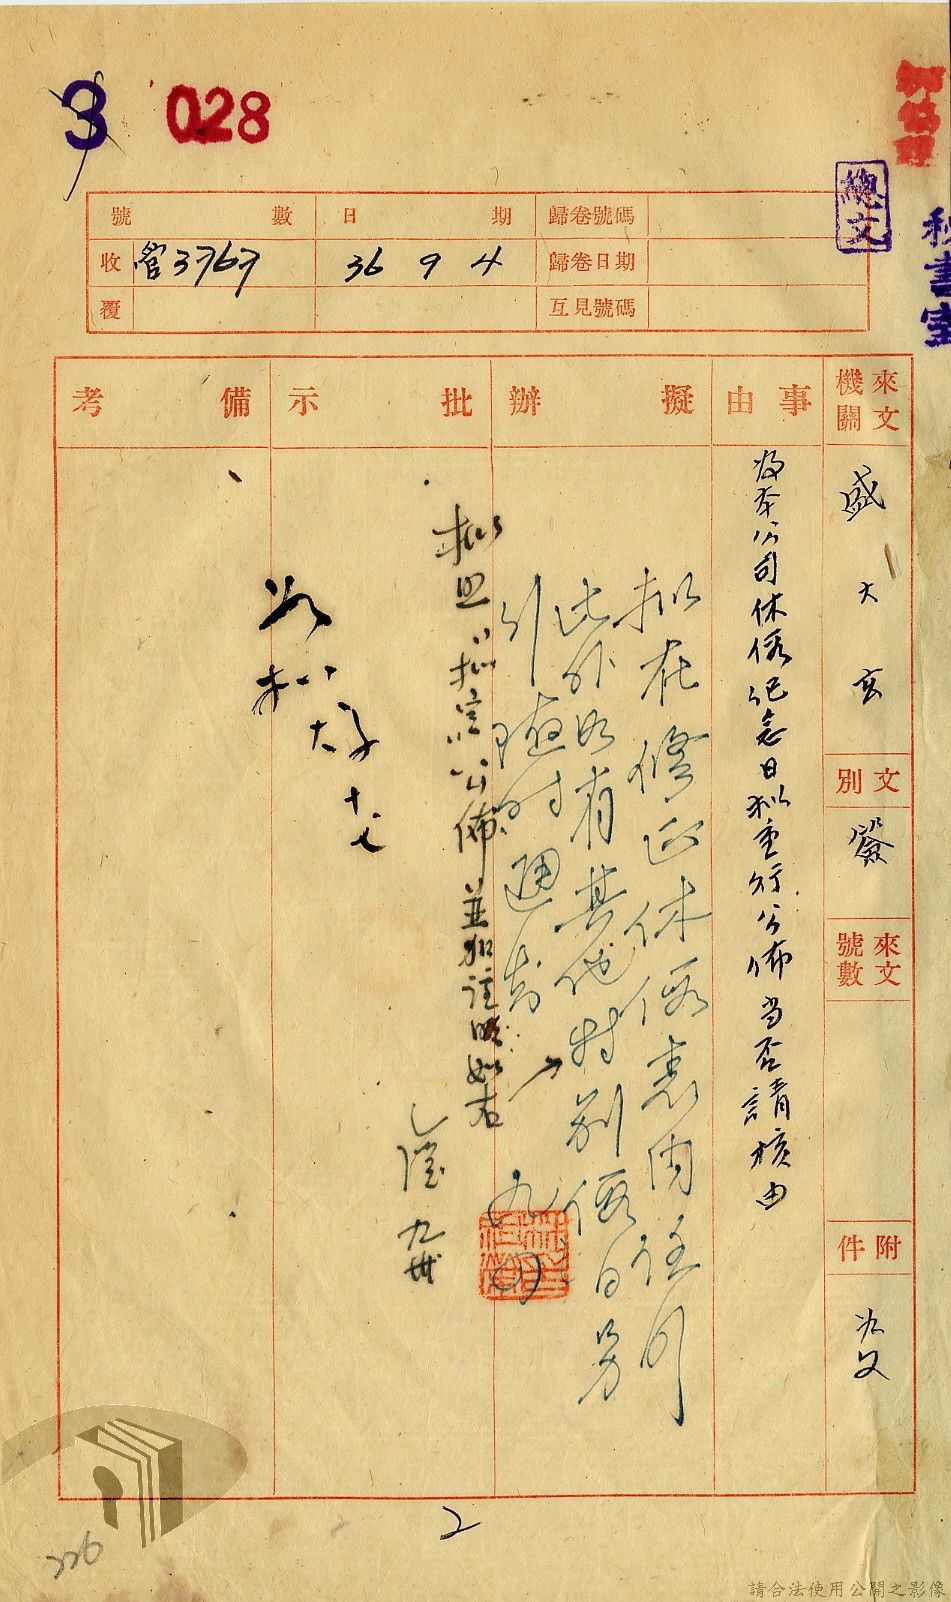 3 028
總文
秘書室
號數 日期 歸卷號碼
收 管3767 36 9 4 歸卷日期
覆 互見號碼
來文機關
盛大亥
文別
簽
來文號數
附件
如文
事由
為本公司休假紀念日擬重行公佈當否請核由
擬辦
擬在修正休假表內註明
此外如有其他特別假日另
行隨時通告
九
批示
擬照「擬定」公佈並加註明如右
如擬
備考
2
226
請合法使用公開之影像